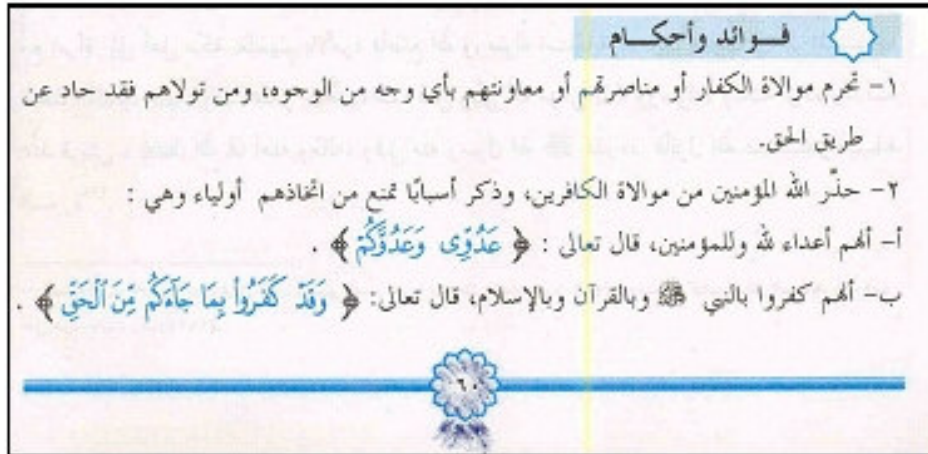 فـوائد وأحكـام
١- تحرم موالاة الكفار أو مناصرتهم أو معاونتهم بأي وجه من الوجوه، ومن تولاهم فقد حاد عن
طريق الحق.
٢- حذّر الله المؤمنين من موالاة الكافرين، وذكر أسبابًا تمنع من اتخاذهم أولياء وهي :
أ- أنهم أعداء لله وللمؤمنين، قال تعالى : ﴿ عَدُوِّى وَعَدُوَّكُمْ ﴾ .
ب- أنهم كفروا بالنبي ﷺ وبالقرآن وبالإسلام، قال تعالى: ﴿ وَقَدْ كَفَرُوا۟ بِمَا جَآءَكُم مِّنَ ٱلْحَقِّ ﴾ .
٦٠